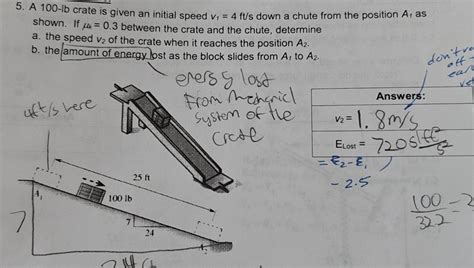 5. A 100-lb crate is given an initial speed v₁ = 4 ft/s down a chute from the position A₁ as
shown. If μₖ = 0.3 between the crate and the chute, determine
a. the speed v₂ of the crate when it reaches the position A₂.
b. the amount of energy lost as the block slides from A₁ to A₂.
energy lost
From mechanical
system of the
crate
4ft/s here
don't
off
Answers:
v₂ = 1.8m/s
E_Lost = 720 slft²/s²
= E₂-E₁
- 2.5
100
322
25 ft
A₁
100 lb
7
24
7
A₂